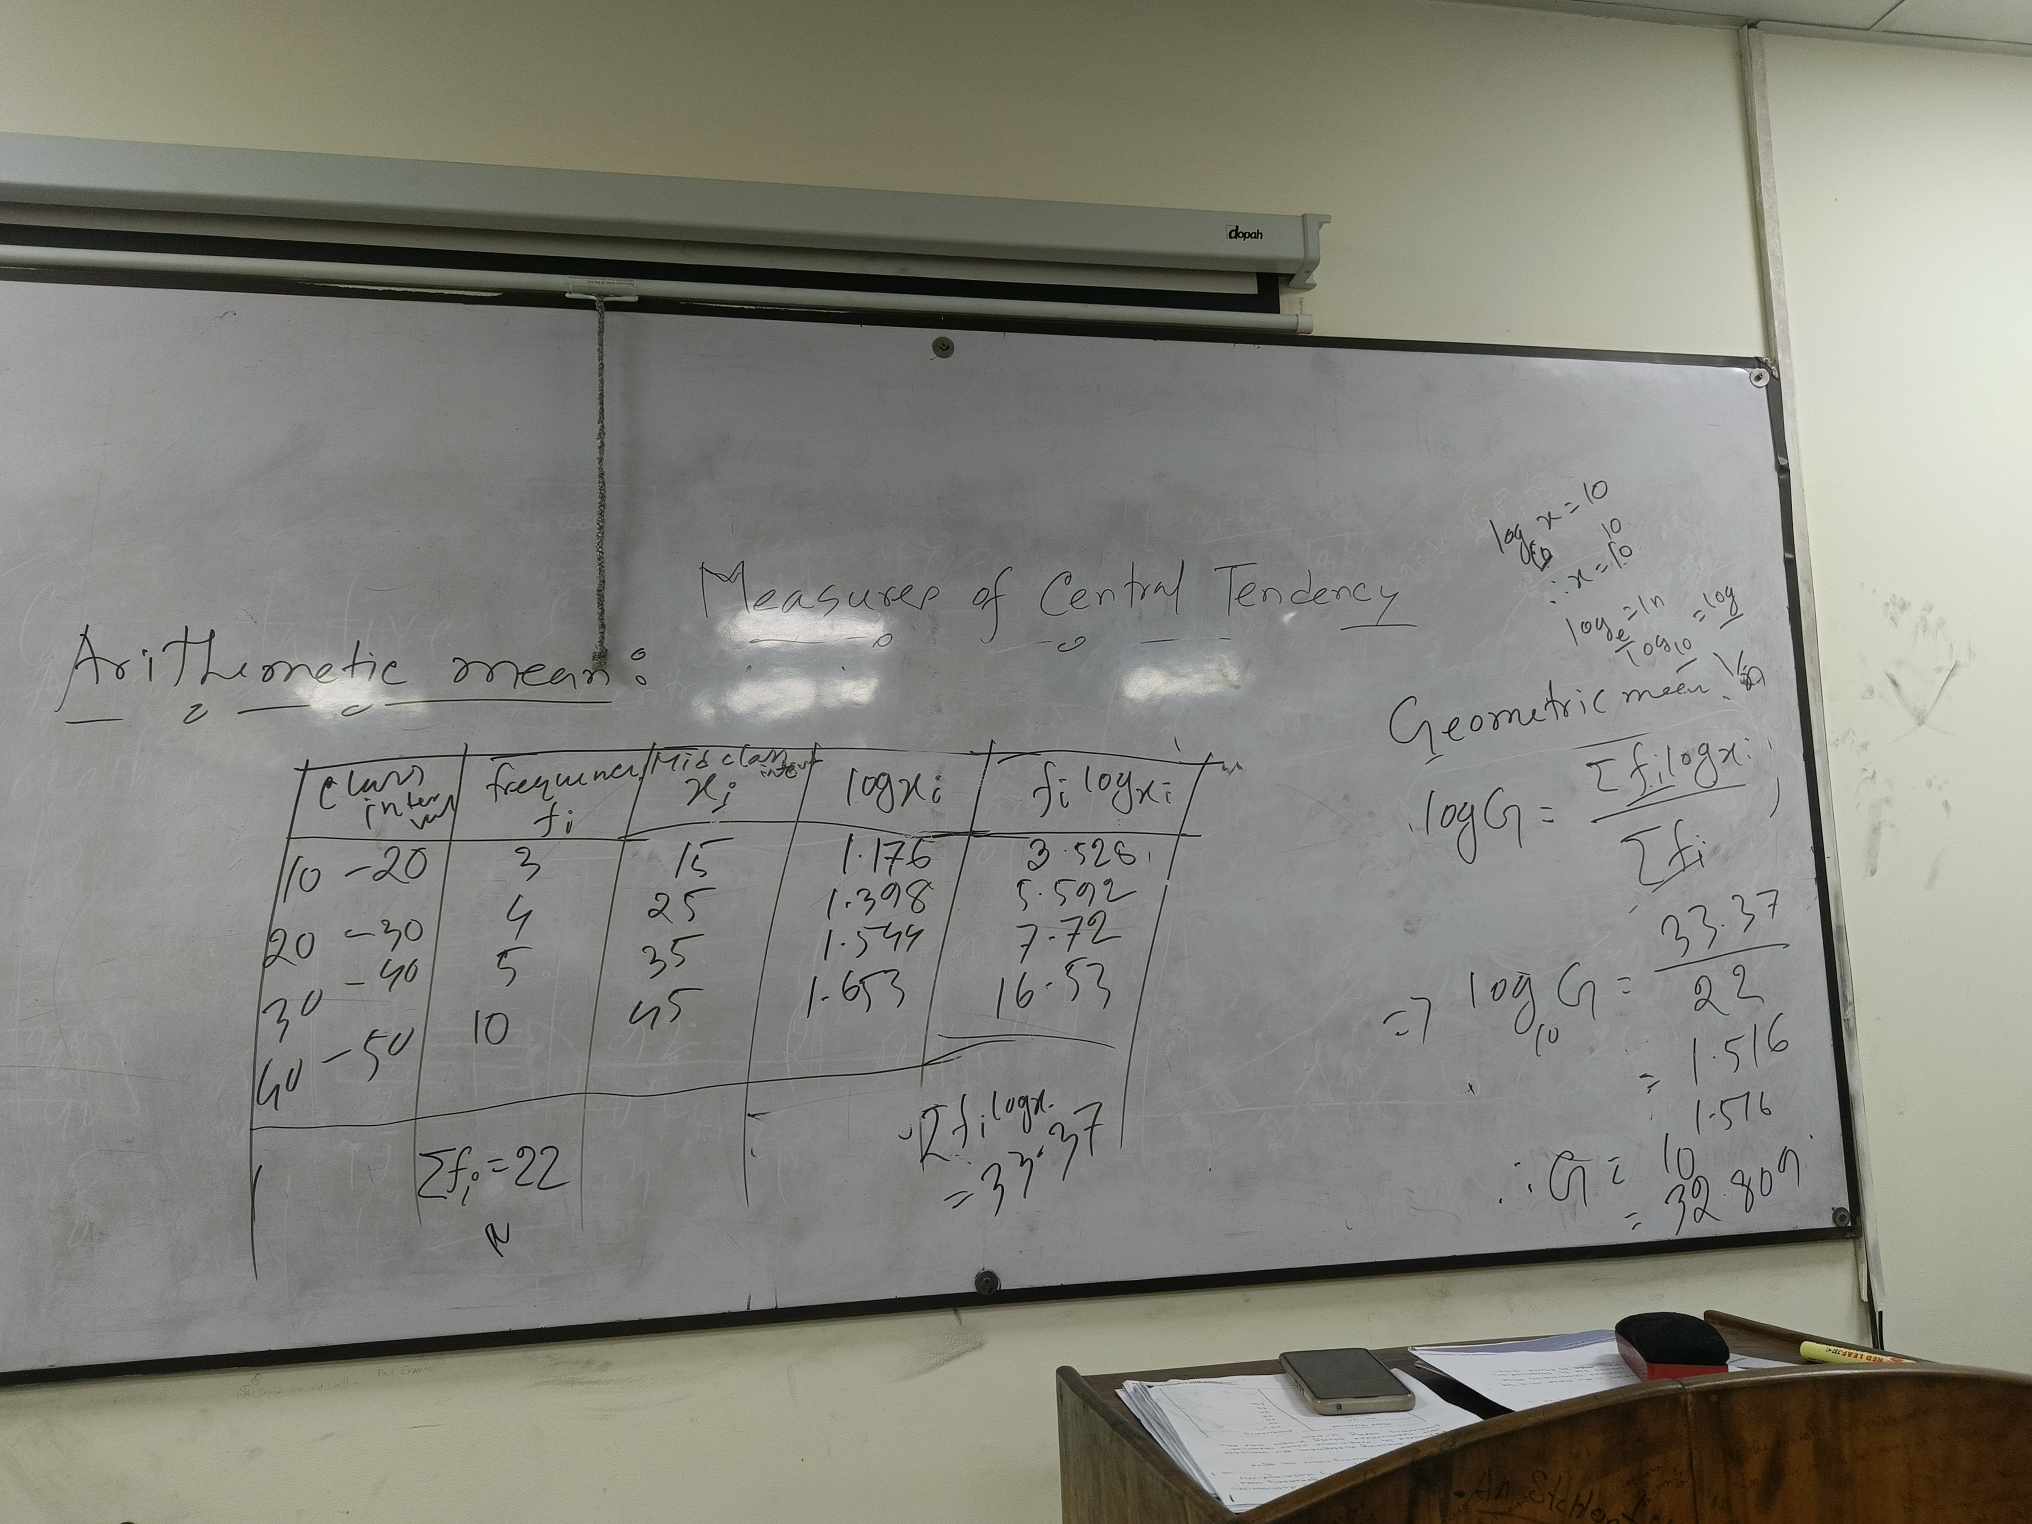 dopah
Measures of Central Tendency
Arithemetic mean:
Class interval | frequency fi | Mid class xi | log xi | fi log xi
10 - 20 | 3 | 15 | 1.176 | 3.528
20 - 30 | 4 | 25 | 1.398 | 5.592
30 - 40 | 5 | 35 | 1.544 | 7.72
40 - 50 | 10 | 45 | 1.653 | 16.53
Σfi = 22
N
Σfi log x
= 33.37
log x = 10
∴ x = 10^10
log e = ln
log 10 = log
Geometric mean
log G = Σfi log xi / Σfi
=> log10 G = 33.37 / 22
= 1.516
∴ G = 10^1.516
= 32.809
RED LEAF